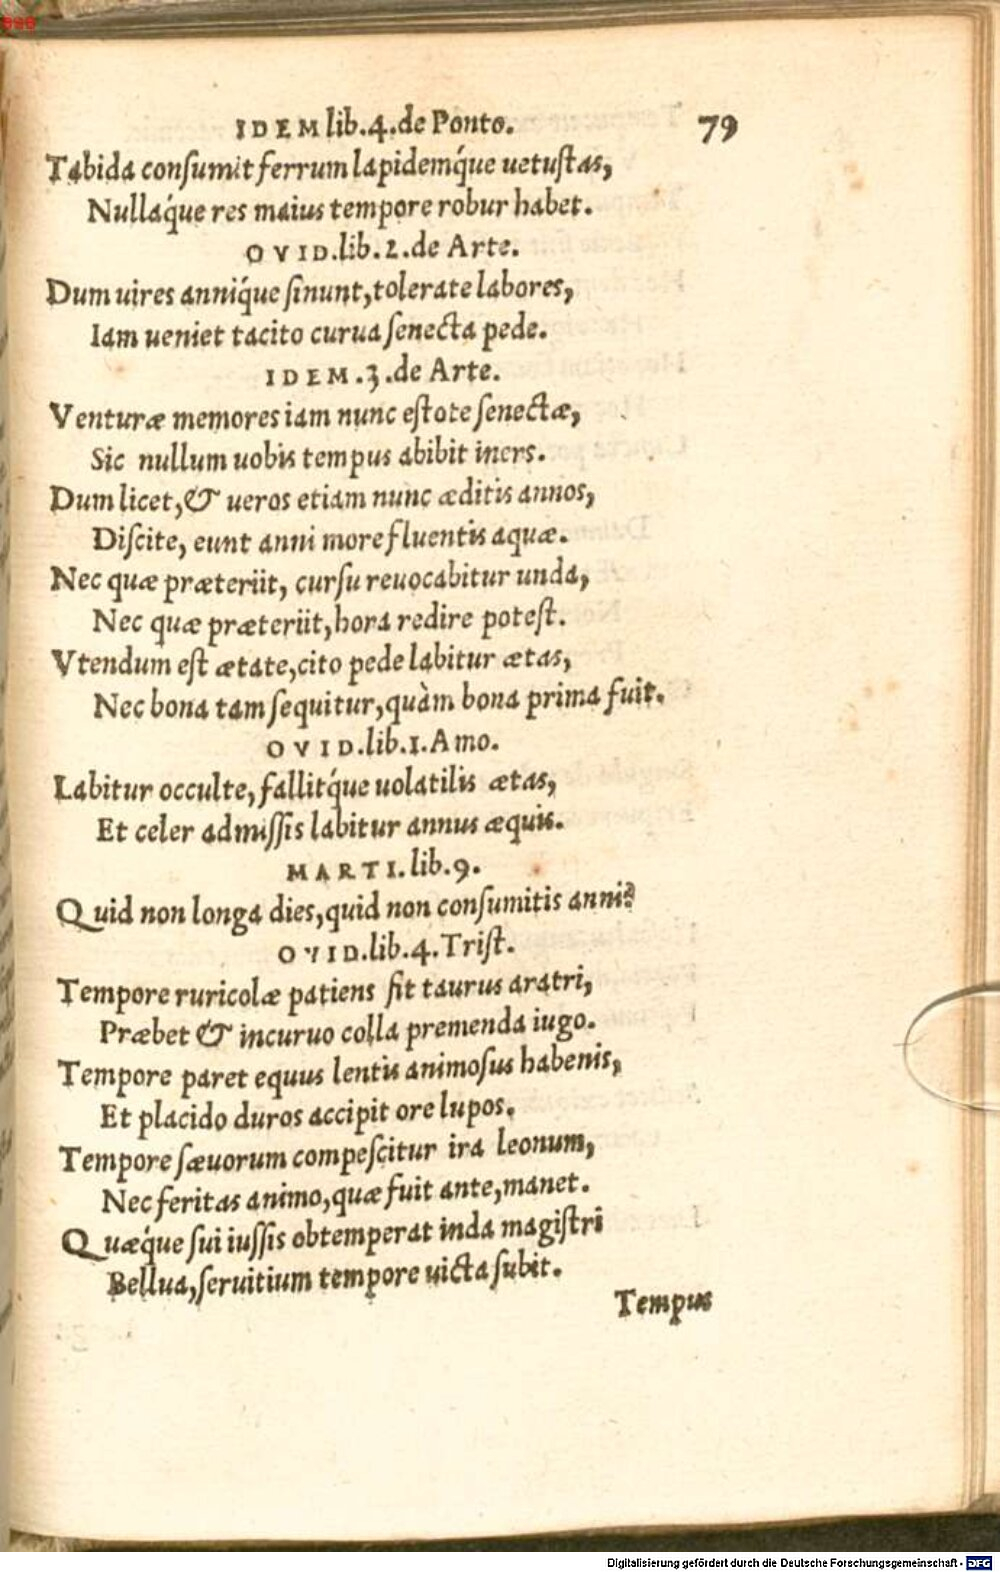 IDEM lib.4.de Ponto. 79
Tabida consumit ferrum lapidemq́ue uetustas,
Nullaq́ue res maius tempore robur habet.
OVID.lib.2.de Arte.
Dum uires anniq́ue sinunt, tolerate labores,
Iam ueniet tacito curua senecta pede.
IDEM.3.de Arte.
Venturæ memores iam nunc estote senectæ,
Sic nullum uobis tempus abibit iners.
Dum licet, & ueros etiam nunc æditis annos,
Discite, eunt anni more fluentis aquæ.
Nec quæ præteriit, cursu reuocabitur unda,
Nec quæ præteriit, hora redire potest.
Vtendum est ætate, cito pede labitur ætas,
Nec bona tam sequitur, quàm bona prima fuit.
OVID.lib.1.Amo.
Labitur occulte, fallitq́ue uolatilis ætas,
Et celer admissis labitur annus æquis.
MARTI.lib.9.
Quid non longa dies, quid non consumitis anni?
OVID.lib.4.Trist.
Tempore ruricolæ patiens fit taurus aratri,
Præbet & incuruo colla premenda iugo.
Tempore paret equus lentis animosus habenis,
Et placido duros accipit ore lupos.
Tempore sæuorum compescitur ira leonum,
Nec feritas animo, quæ fuit ante, manet.
Quæq́ue sui iussis obtemperat inda magistri
Bellua, seruitium tempore uicta subit.
Tempus
Digitalisierung gefördert durch die Deutsche Forschungsgemeinschaft - DFG